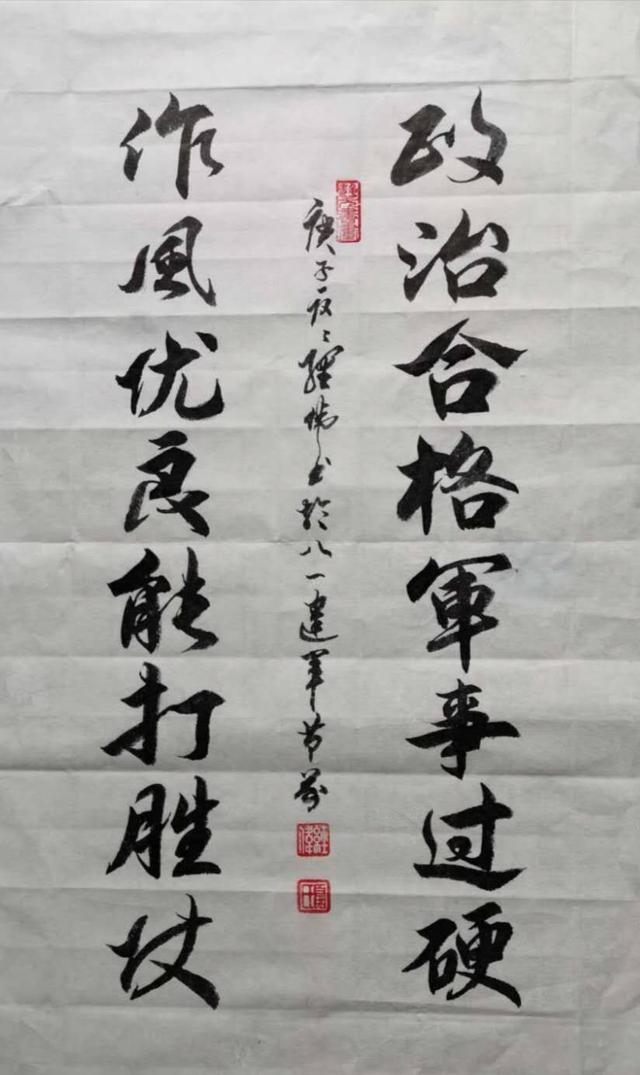 政治合格軍事过硬
作風优良能打胜仗
庚子夏伟书於八一建军节前